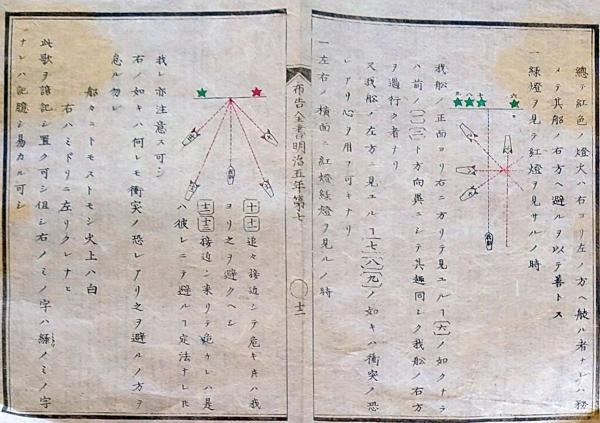 總テ紅色ノ燈火ハ右ヨリ左ノ方ヘ航ハ者ナレハ務
メテ其船ノ右方ヘ避ルヲ以テ善トス
一緑燈ヲ見テ紅燈ヲ見サルノ時
九 八 七 六
我船ノ正面ヨリ右ニ方リテ見ユル六ノ如クナラ
ハ前ノ一二三ト方向異ニシテ其趣同シク我船ノ右方
ヲ過行ク者ナリ
又我船ノ左方ニ見ユル七八九ノ如キハ衝突ノ恐
レアリ心ヲ用フ可キナリ
一左右ノ横面ニ紅燈緑燈ヲ見ルノ時
布告全書明治五年第七
十二
追々接近シテ危キ片ハ我
ヨリ之ヲ避クヘシ
接近シ来リテ危ケレハ是
ハ彼レニテ避ルヿ定法ナレ𪜈
我レ亦注意ス可シ
右ノ如キハ何レモ衝突ノ恐レアリ之ヲ避ルノ方ヲ
怠ル勿レ
船々ニトモストモシ火上ハ白
右ハミドリニ左リクレナヒ
此歌ヲ諳記シ置ク可シ但シ右ノミノ字ハ緑ノミノ字
ナレハ記臆シ易カル可シ